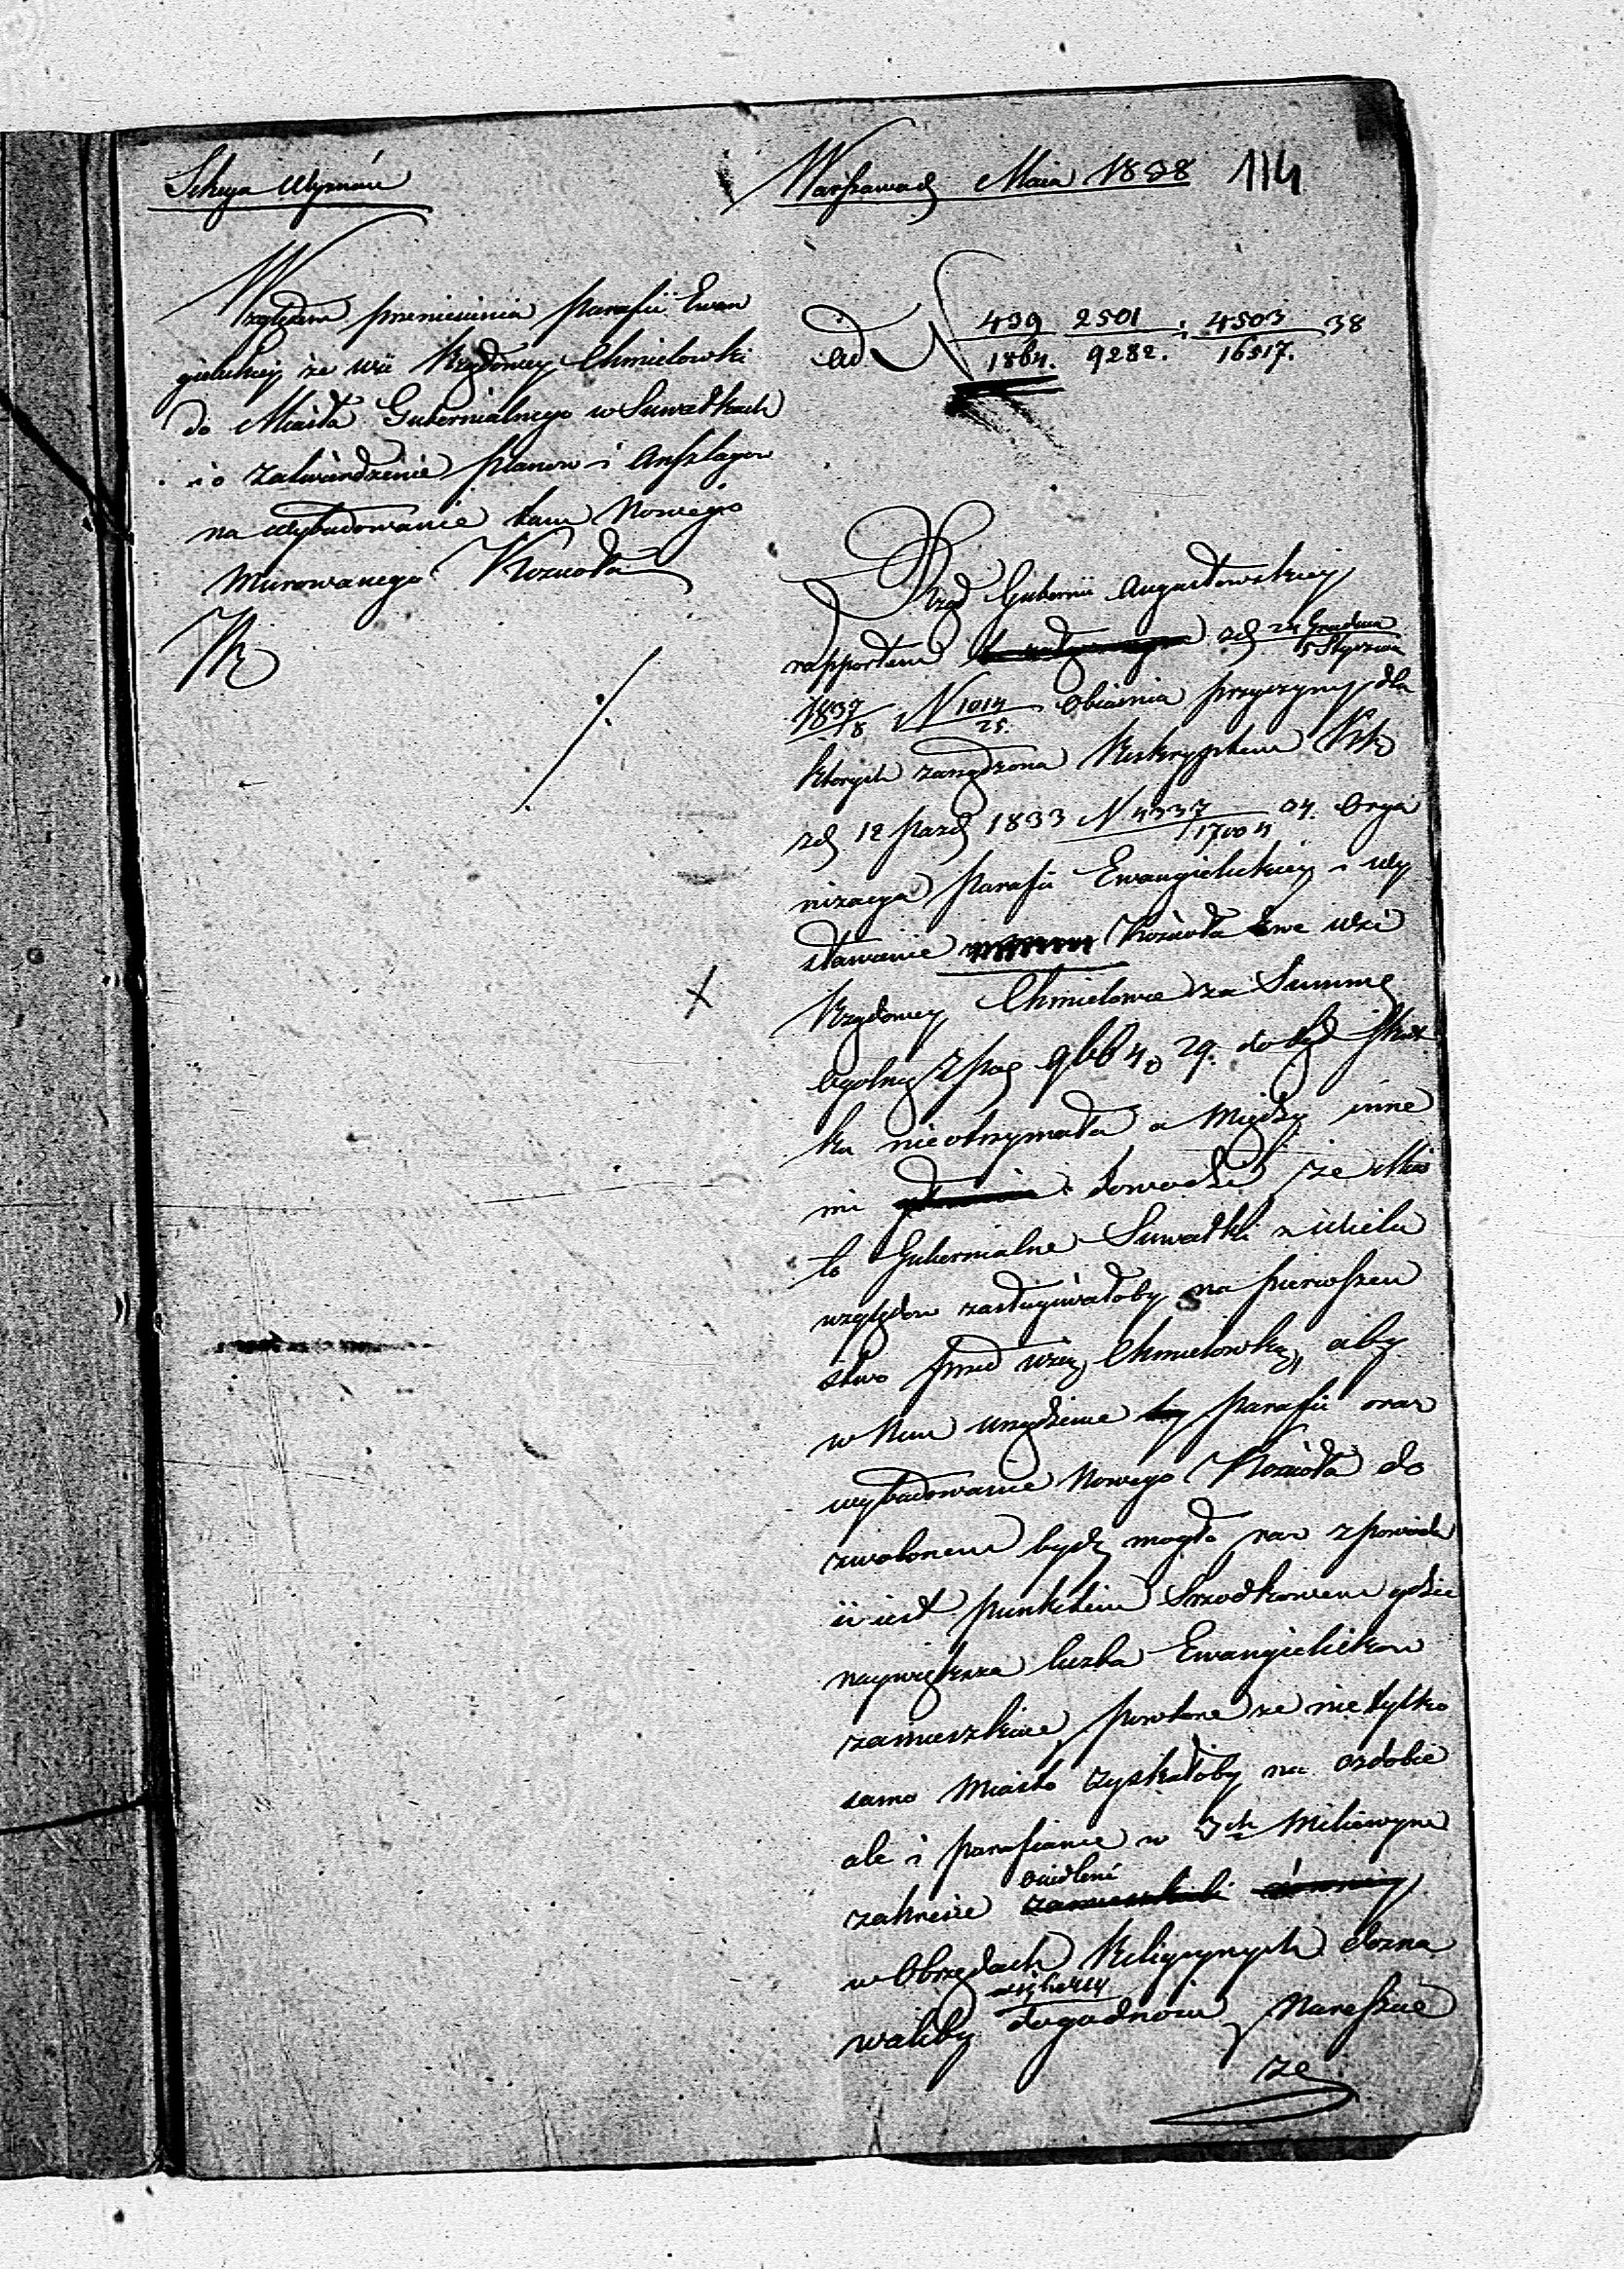 Sekcya Wyznań
Warszawa d. Maia 1838 114
Względem przeniesienia parafii Ewan
gielickiey ze wsi Rządowey Chmielowki
do Miasta Gubernialnego w Suwałkach
i o zatwierdzenie planow i Anszlagow
na wybudowanie tam Nowego
murowanego Kościoła
ad N 439/1864. 2501/9282. : 4503/16517. 38
Rząd Gubernii Augustowskiey
rapportem z d. 24 Grudnia / 5 Stycznia
1837/8 N 1014/25. obiaśnia przyczyny dla
ktorych zarządzona Reskryptem
z d. 12 Paźd. 1833 N. 4337/17004 Orga
nizacya parafii Ewangielickiey i wy
stawienie Kościoła we wsi
Rządowey Chmielowce za Summę
ogolną Zł. 29. dotąd skut
ku nie otrzymała a między inne
mi dowodzi że Mias
to Gubernialne Suwałki z wielu
względow zasługiwałoby na pierwszeń
stwo przed wsią Chmielowką, aby
w Nim urządzenie parafii oraz
wybudowanie Nowego Kościoła do
zwolonem bydź mogło raz z powodu
iż iest punktem Srzodkowem gdzie
naywiększa liczba Ewangielikow
zamieszkuie, powtore że nie tylko
samo Miasto zyskałoby na ozdobie
ale i parafianie w 3ch Milowym
zakresie osiedleni
w Obrzędach Religiynych dozna
waliby większey dogodności, Nareszcie
że